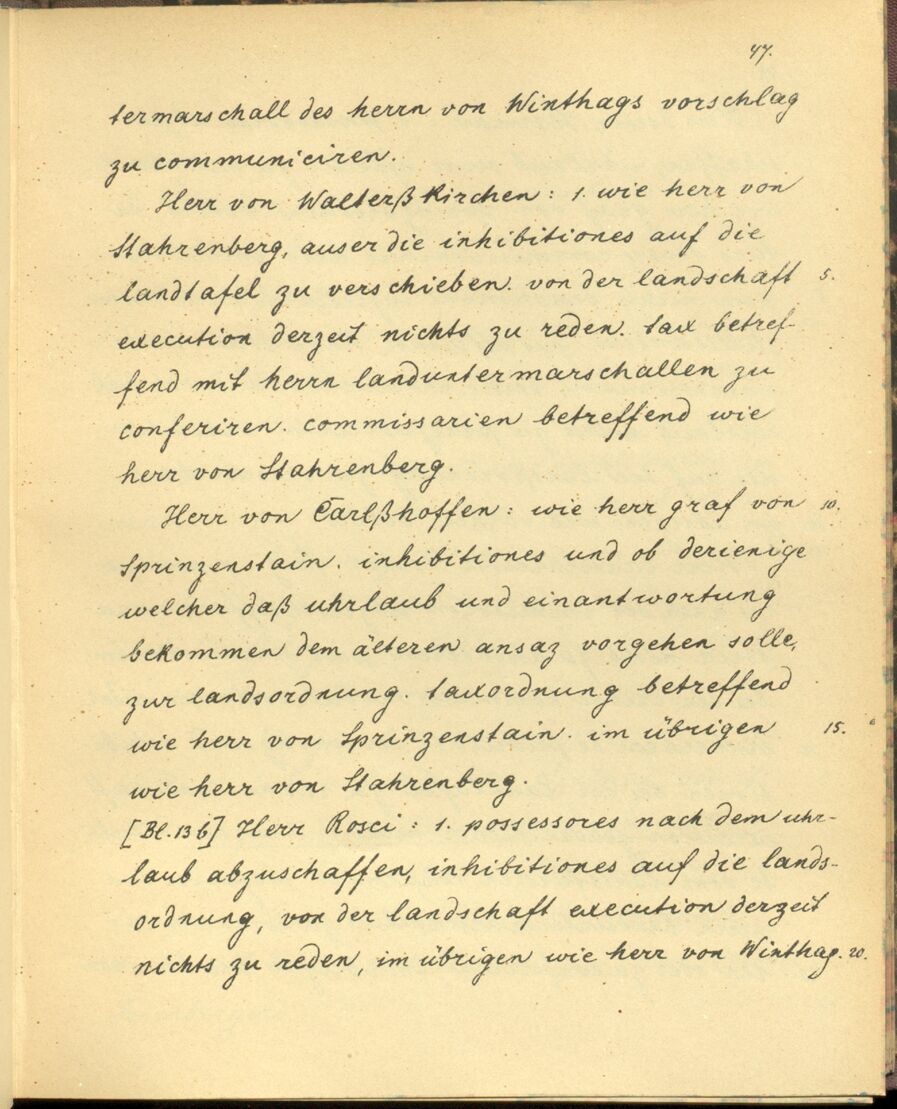 47.
termarschall des herrn von Winthags vorschlag
zu communiciren.
Herr von Walterßkirchen: 1. wie herr von
Stahrenberg, auser die inhibitiones auf die
landtafel zu verschieben. von der landschaft 5.
execution derzeit nichts zu reden. tax betref-
fend mit herrn landuntermarschallen zu
conferiren. commissarien betreffend wie
herr von Stahrenberg.
Herr von Carlßhoffen: wie herr graf von 10.
Sprinzenstain. inhibitiones und ob derienige
welcher daß uhrlaub und einantwortung
bekommen dem älteren ansaz vorgehen solle,
zur landsordnung. taxordnung betreffend
wie herr von Sprinzenstain. im übrigen 15.
wie herr von Stahrenberg.
[Bl. 13 b] Herr Rosci: 1. possessores nach dem uhr-
laub abzuschaffen, inhibitiones auf die lands-
ordnung, von der landschaft execution derzeit
nichts zu reden, im übrigen wie herr von Winthag. 20.